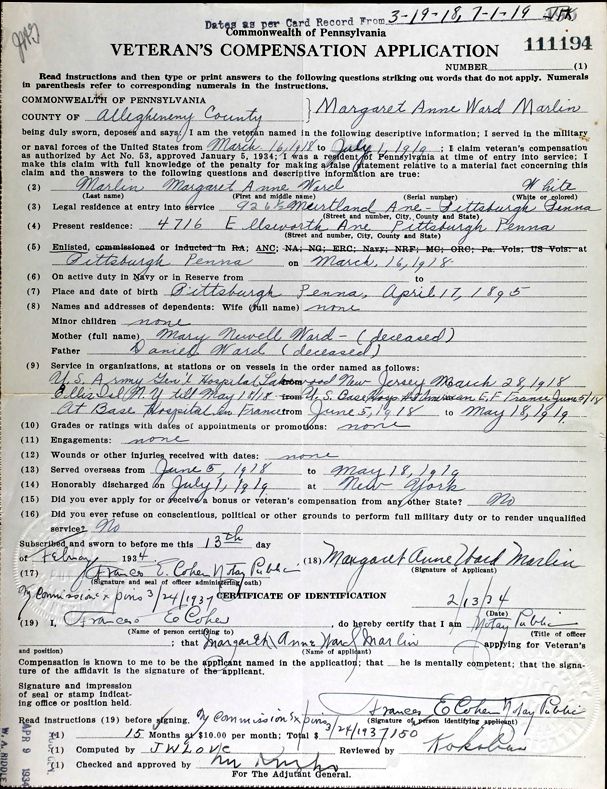 Dates as per Card Record From 3-19-18, 7-1-19
Commonwealth of Pennsylvania
VETERAN'S COMPENSATION APPLICATION 111194
NUMBER (1)
Read instructions and then type or print answers to the following questions striking out words that do not apply. Numerals
in parenthesis refer to corresponding numerals in the instructions.
COMMONWEALTH OF PENNSYLVANIA
COUNTY OF Allegheneny County } Margaret Anne Ward Marlin
being duly sworn, deposes and says: I am the veteran named in the following descriptive information; I served in the military
or naval forces of the United States from March 16, 1918 to July 1, 1919; I claim veteran's compensation
as authorized by Act No. 53, approved January 5, 1934; I was a resident of Pennsylvania at time of entry into service; I
make this claim with full knowledge of the penalty for making a false statement relative to a material fact concerning this
claim and the answers to the following questions and descriptive information are true:
(2) Marlin Margaret Anne Ward White
(Last name) (First and middle name) (Serial number) (White or colored)
(3) Legal residence at entry into service Ave - Pittsburgh Penna
(Street and number, City, County and State)
(4) Present residence: 4716 Ellsworth Ave Pittsburgh Penna
(Street and number, City, County and State)
(5) Enlisted, commissioned or inducted in RA; ANC; NA; NG; ERC; Navy; NRF; MC; ORC; Pa. Vols; US Vols: at
Pittsburgh Penna on March, 16, 1918.
(6) On active duty in Navy or in Reserve from to
(7) Place and date of birth Pittsburgh Penna, April 17, 1895
(8) Names and addresses of dependents: Wife (full name) none
Minor children none
Mother (full name) Mary Newell Ward - (deceased)
Father Daniel Ward (deceased)
(9) Service in organizations, at stations or on vessels in the order named as follows:
U.S. Army Gen'l Hospital Lakewood New Jersey March 28, 1918
Ellis Isl N.Y. till May from U.S. Base Hosp American E.F. France June 5/18
At Base Hospital in France from June 5, 1918 to May 18, 1919.
(10) Grades or ratings with dates of appointments or promotions: none
(11) Engagements: none
(12) Wounds or other injuries received with dates: none
(13) Served overseas from June 5, 1918 to May 18, 1919
(14) Honorably discharged on July 1, 1919 at New York
(15) Did you ever apply for or receive a bonus or veteran's compensation from any other State? No
(16) Did you ever refuse on conscientious, political or other grounds to perform full military duty or to render unqualified
service? No
Subscribed and sworn to before me this 13th day
of 1934 (18) Margaret Anne Ward Marlin
(Signature of Applicant)
(17) Frances E. Cohen Notary Public
(Signature and seal of officer administering oath)
My commission expires 3/24/1937 CERTIFICATE OF IDENTIFICATION 2/13/34
(Date)
(19) I, Frances E Cohen, do hereby certify that I am Notary Public
(Name of person certifying to) (Title of officer
; that Margaret Anne Ward Marlin applying for Veteran's
and position) (Name of applicant)
Compensation is known to me to be the applicant named in the application; that he is mentally competent; that the signa-
ture of the affidavit is the signature of the applicant.
Signature and impression
of seal or stamp indicat-
ing office or position held.
Frances E Cohen Notary Public
Read instructions (19) before signing. My Commission Expires 3/24/1937 (Signature of person identifying applicant)
(1) 15 Months at $10.00 per month; Total $ 150
(1) Computed by J W Love Reviewed by
(1) Checked and approved by
For The Adjutant General.
APR 9 1934
W. A. RIDDLE